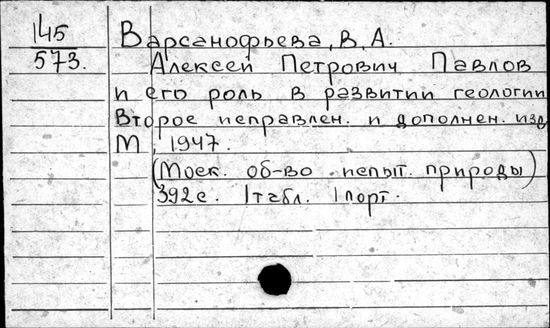 145
573.
Варсанофьева, В. А.
Алексей Петрович Павлов
и его роль в развитии геологии
Второе исправлен. и дополнен. изд.
М., 1947.
(Моск. об-во испыт. природы)
392 с. 1 табл. 1 порт.